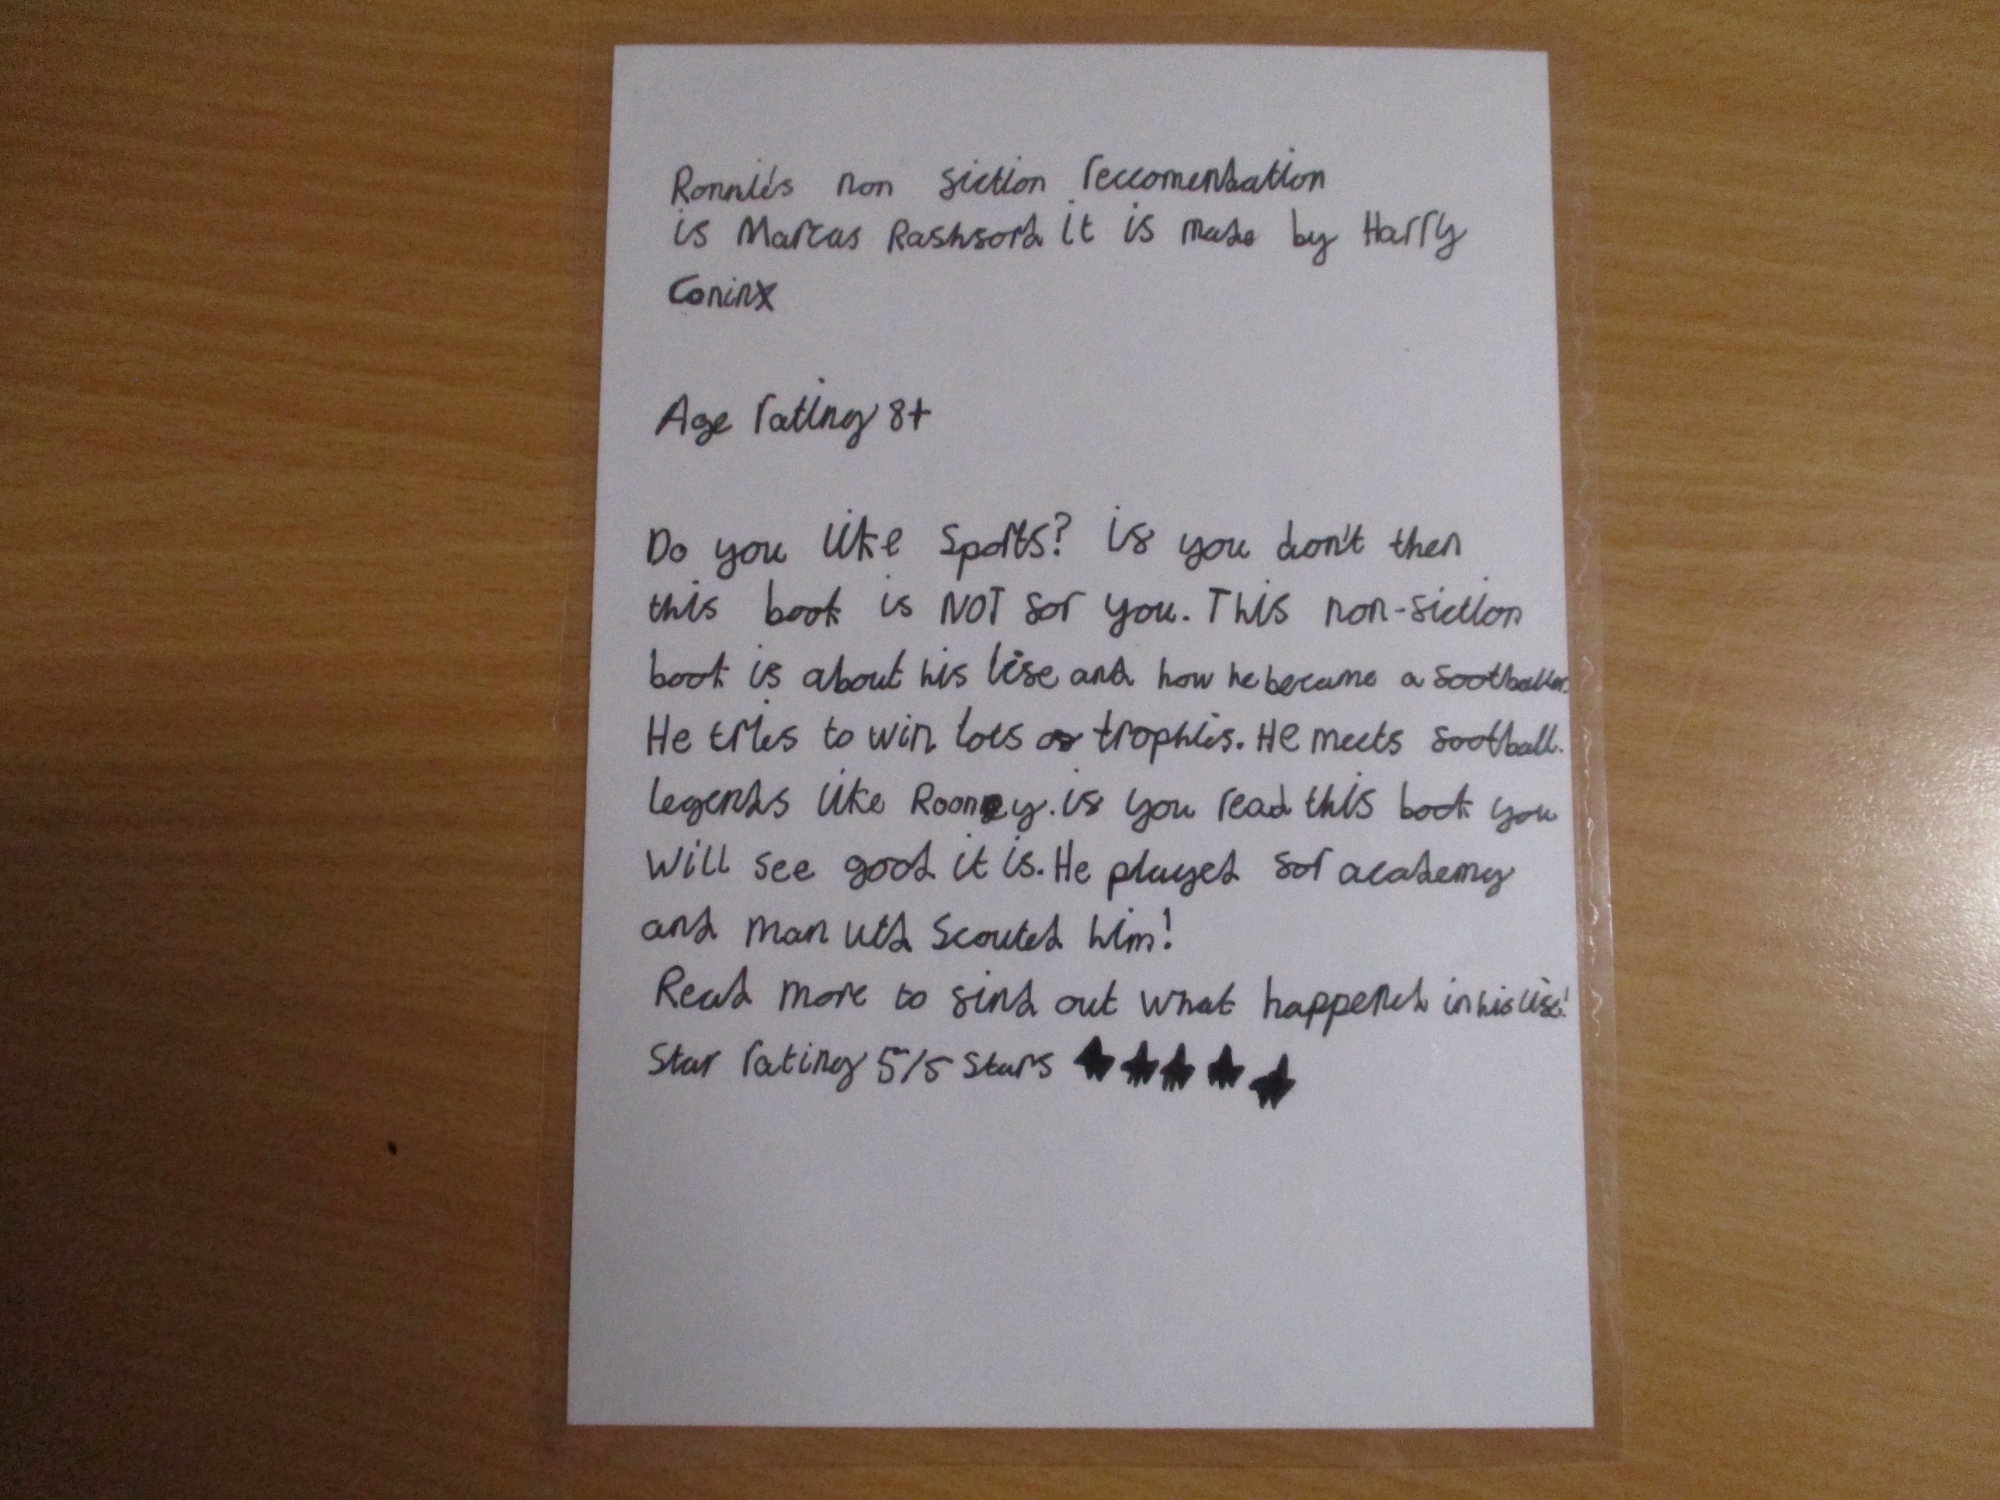 Ronnie's non fiction reccomendation
is Marcus Rashford it is made by Harry
Coninx
Age rating 8+
Do you like sports? if you don't then
this book is NOT for you. This non-fiction
book is about his life and how he became a footballer.
He tries to win lots of trophies. He meets football
legends like Rooney. if you read this book you
will see good it is. He played for academy
and man utd scouted him!
Read more to find out what happened in his life!
Star rating 5/5 stars ★★★★★